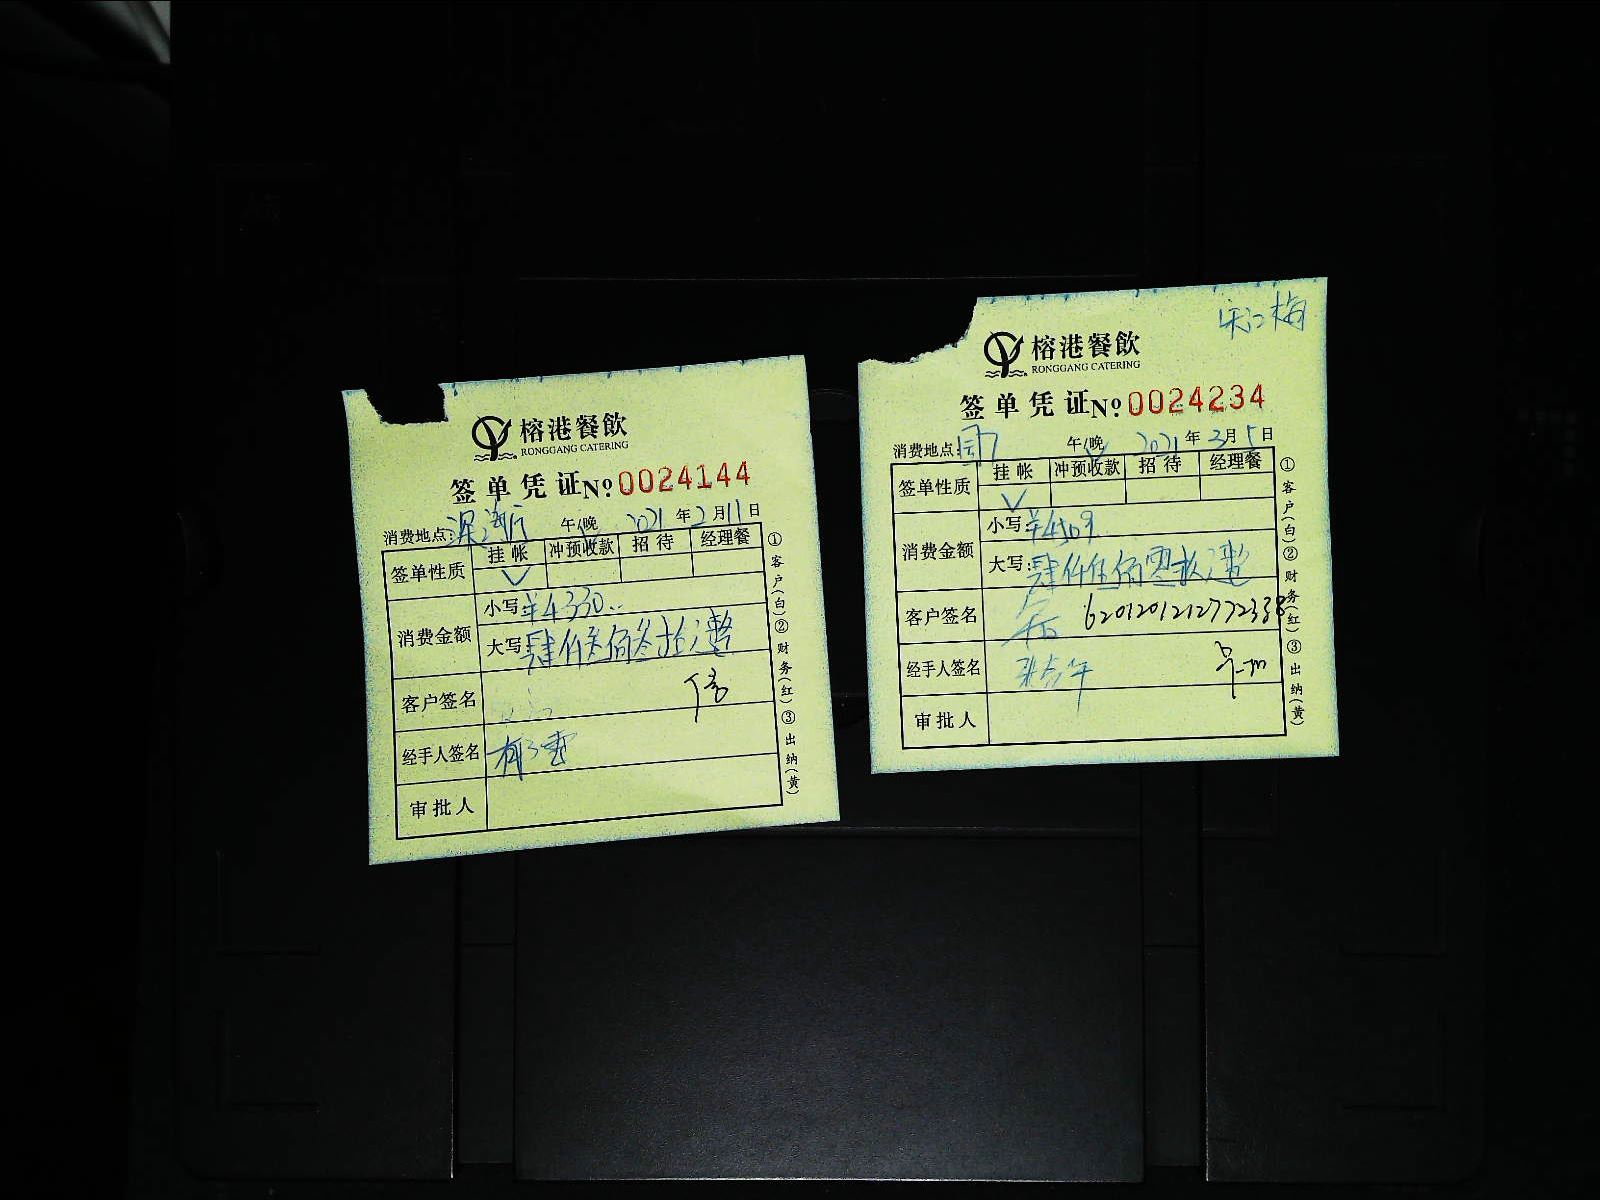 榕港餐飲
RONGGANG CATERING
签单凭证 №0024144
消费地点: 午/晚 2021年2月11日
挂帐 冲预收款 招待 经理餐
签单性质 ✓
消费金额
小写 ¥4330..
大写 肆仟叁佰叁拾元整
客户签名
经手人签名
审批人
①客户(白)②财务(红)③出纳(黄)
宋江梅
榕港餐飲
RONGGANG CATERING
签单凭证 №0024234
消费地点: 午/晚 2021年3月5日
挂帐 冲预收款 招待 经理餐
签单性质 ✓
消费金额
小写 ¥4509.
大写: 肆仟伍佰零玖元整
客户签名 6201201212772338
经手人签名
审批人
①客户(白)②财务(红)③出纳(黄)